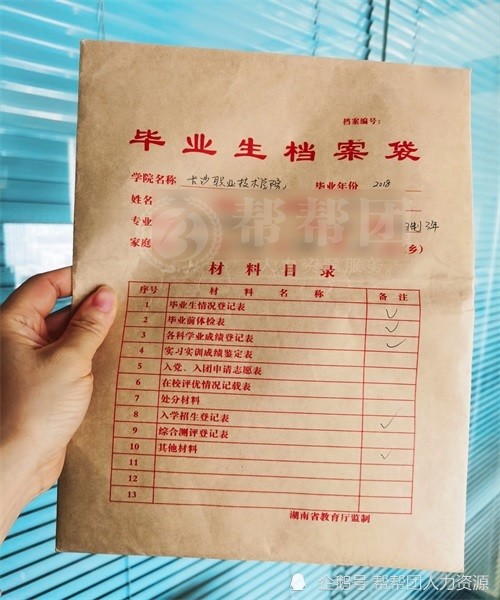 档案编号:
毕业生档案袋
学院名称 长沙职业技术学院 毕业年份 2018
姓名
专业 制 3年
家庭 乡)
帮帮团
材料目录
序号 材料名称 备注
1 毕业生情况登记表 ✓
2 毕业前体检表 ✓
3 各科学业成绩登记表 ✓
4 实习实训成绩鉴定表
5 入党、入团申请志愿表
6 在校评优情况记载表
7 处分材料
8 入学招生登记表 ✓
9 综合测评登记表
10 其他材料 ✓
11
12
13
湖南省教育厅监制
企鹅号 帮帮团人力资源